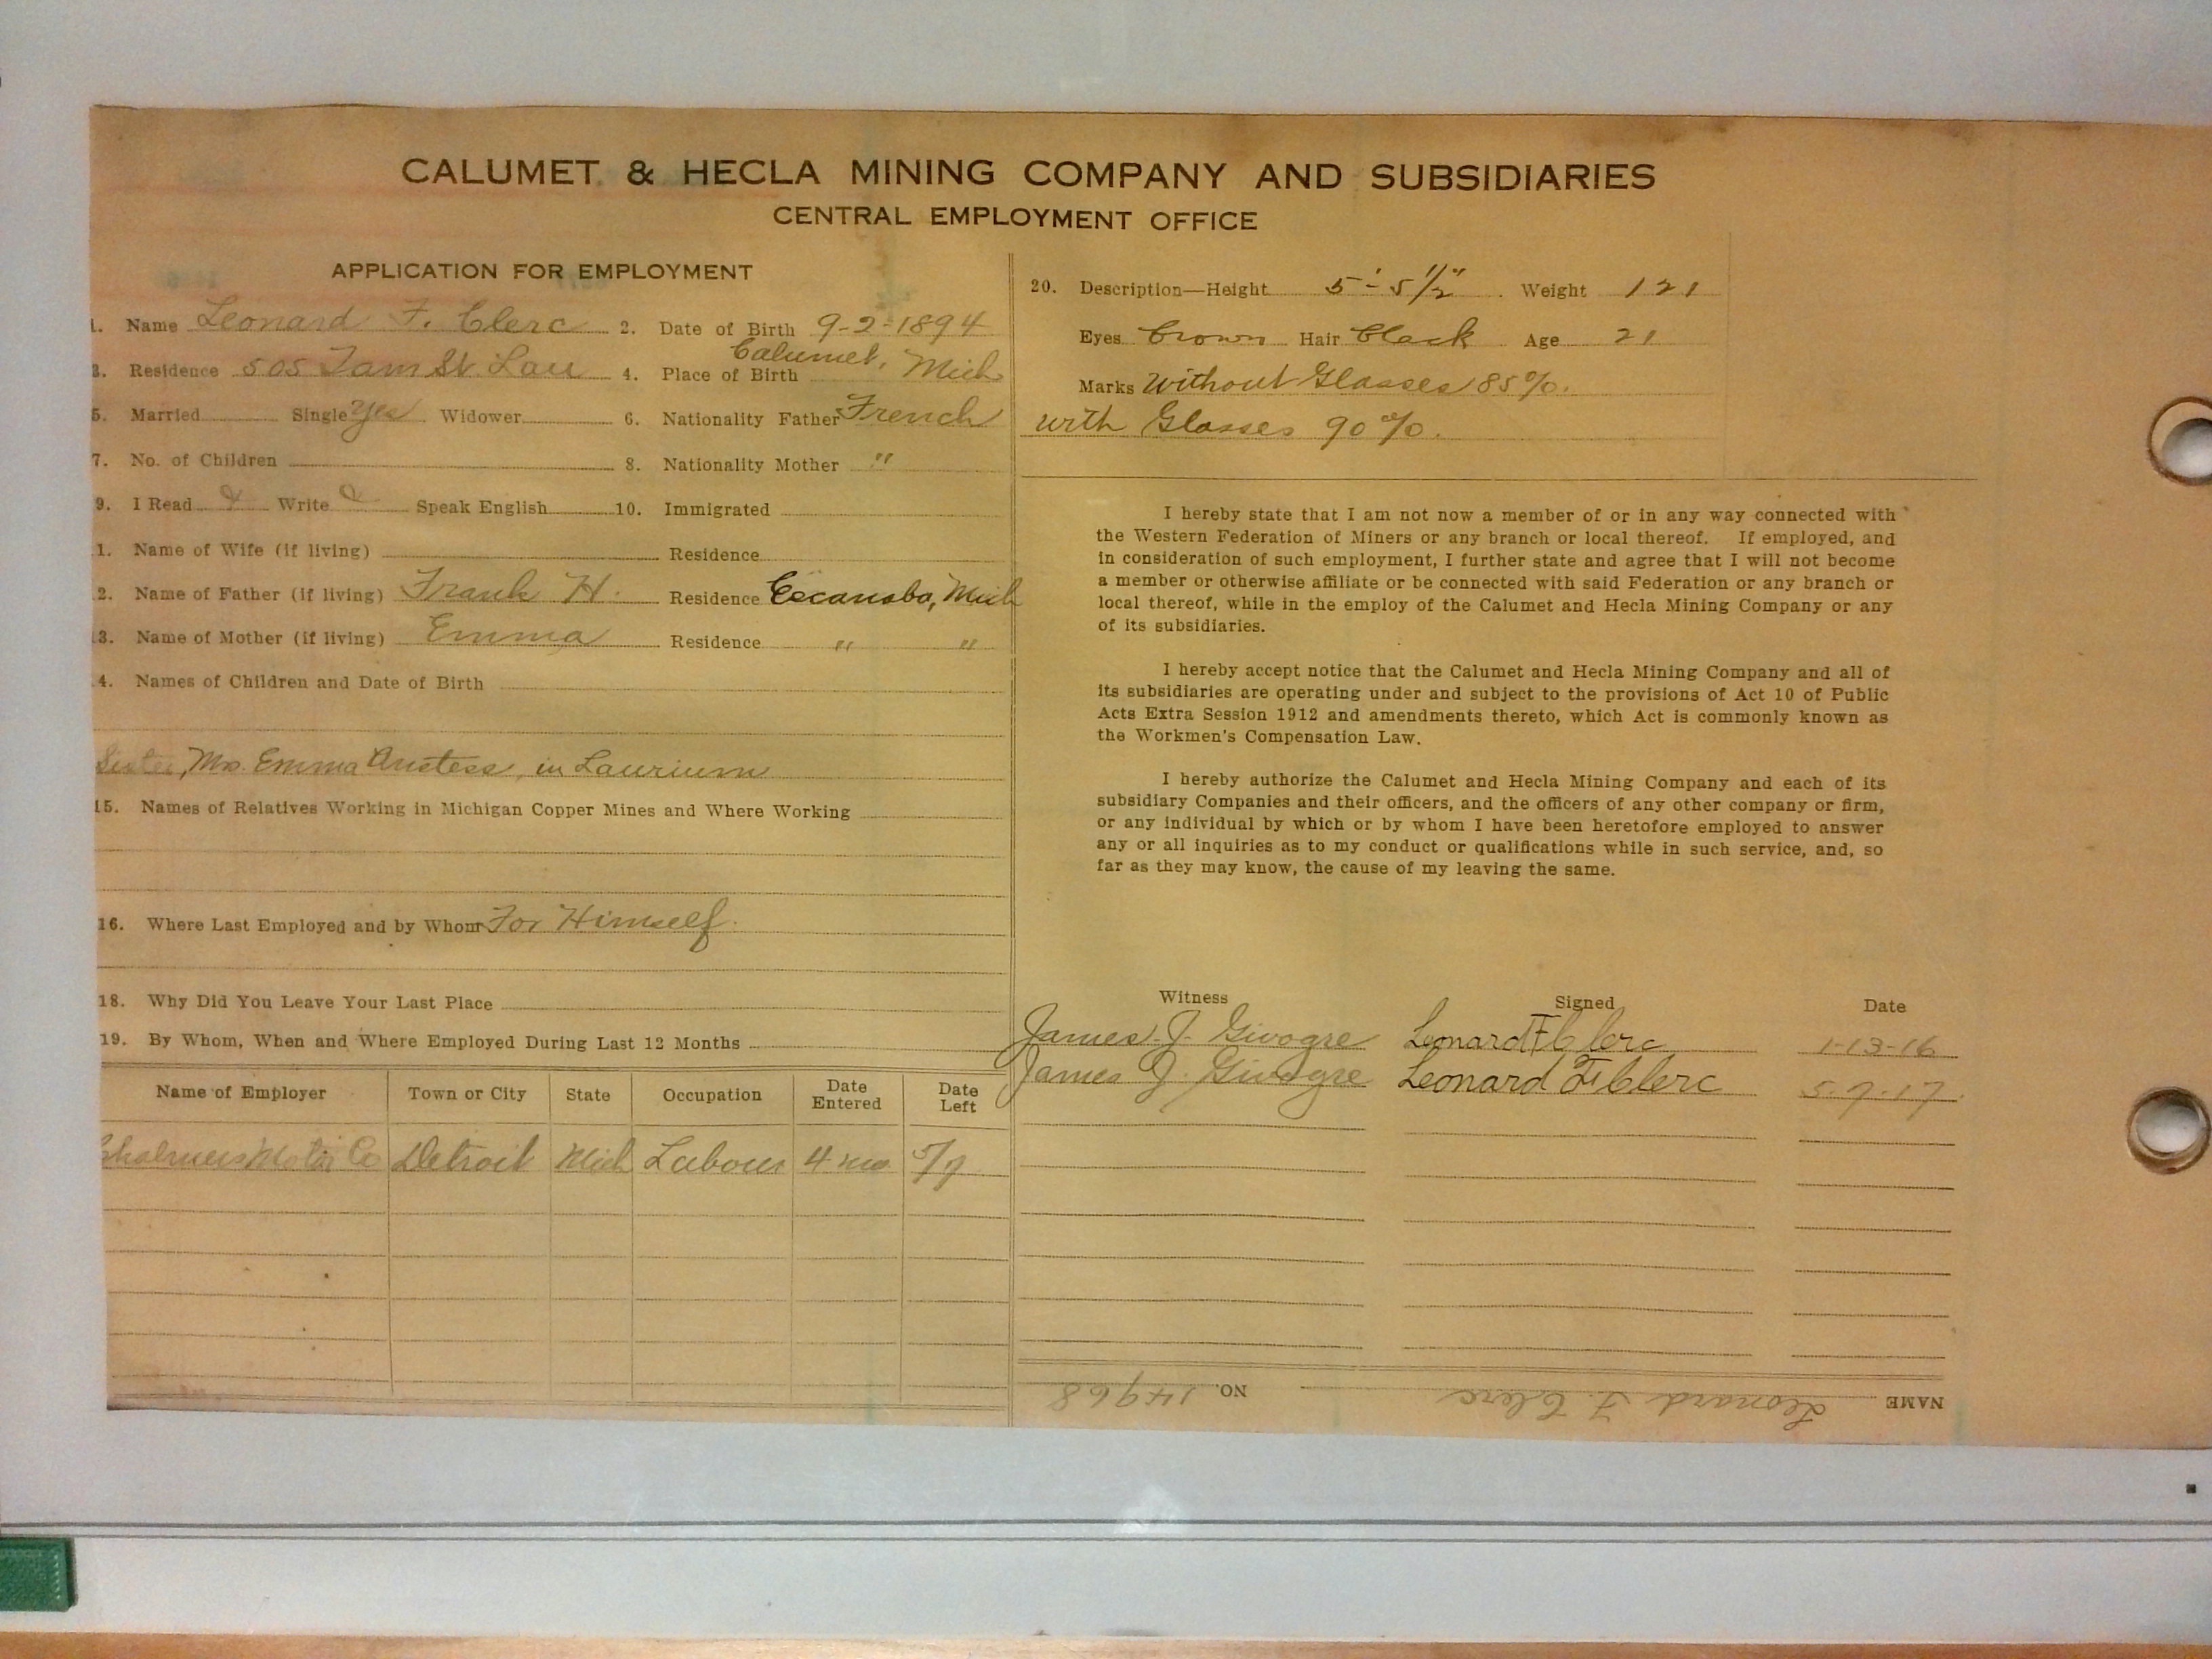 CALUMET & HECLA MINING COMPANY AND SUBSIDIARIES
CENTRAL EMPLOYMENT OFFICE
APPLICATION FOR EMPLOYMENT
1. Name Leonard F. Clerc 2. Date of Birth 9-2-1894
3. Residence 505 Tam St. Lau 4. Place of Birth Calumet, Mich
5. Married Single Yes Widower 6. Nationality Father French
7. No. of Children 8. Nationality Mother "
9. I Read Write Speak English 10. Immigrated
1. Name of Wife (if living) Residence
2. Name of Father (if living) Frank H. Residence Escanaba, Mich
3. Name of Mother (if living) Emma Residence " "
4. Names of Children and Date of Birth
Sister, Mrs. Emma in Laurium
15. Names of Relatives Working in Michigan Copper Mines and Where Working
16. Where Last Employed and by Whom For Himself.
18. Why Did You Leave Your Last Place
19. By Whom, When and Where Employed During Last 12 Months
Name of Employer Town or City State Occupation Date Entered Date Left
Chalmers Motor Co Detroit Mich Labour 4 mo 5/7
20. Description—Height 5'-5 1/2" Weight 121
Eyes Brown Hair Black Age 21
Marks Without Glasses 85%.
with Glasses 90%.
I hereby state that I am not now a member of or in any way connected with
the Western Federation of Miners or any branch or local thereof. If employed, and
in consideration of such employment, I further state and agree that I will not become
a member or otherwise affiliate or be connected with said Federation or any branch or
local thereof, while in the employ of the Calumet and Hecla Mining Company or any
of its subsidiaries.
I hereby accept notice that the Calumet and Hecla Mining Company and all of
its subsidiaries are operating under and subject to the provisions of Act 10 of Public
Acts Extra Session 1912 and amendments thereto, which Act is commonly known as
the Workmen's Compensation Law.
I hereby authorize the Calumet and Hecla Mining Company and each of its
subsidiary Companies and their officers, and the officers of any other company or firm,
or any individual by which or by whom I have been heretofore employed to answer
any or all inquiries as to my conduct or qualifications while in such service, and, so
far as they may know, the cause of my leaving the same.
Witness Signed Date
James J. Givogre Leonard F Clerc 1-13-16
James J. Givogre Leonard F Clerc 5-7-17
NAME Leonard F. Clerc NO. 14968